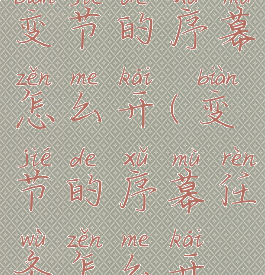 biàn jié de xù mù
变节的序幕
zěn me kāi biàn
怎么开(变
jié de xù mù rèn
节的序幕任
wù zěn me kāi
务怎么开